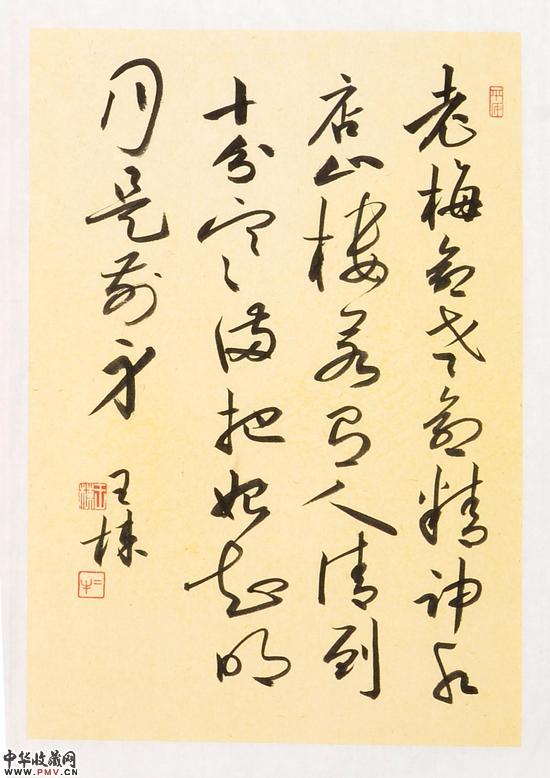 老梅愈老愈精神水
店山樓若有人清到
十分寒滿把始知明
月是前身
王
中华收藏网
www.PMV.CN